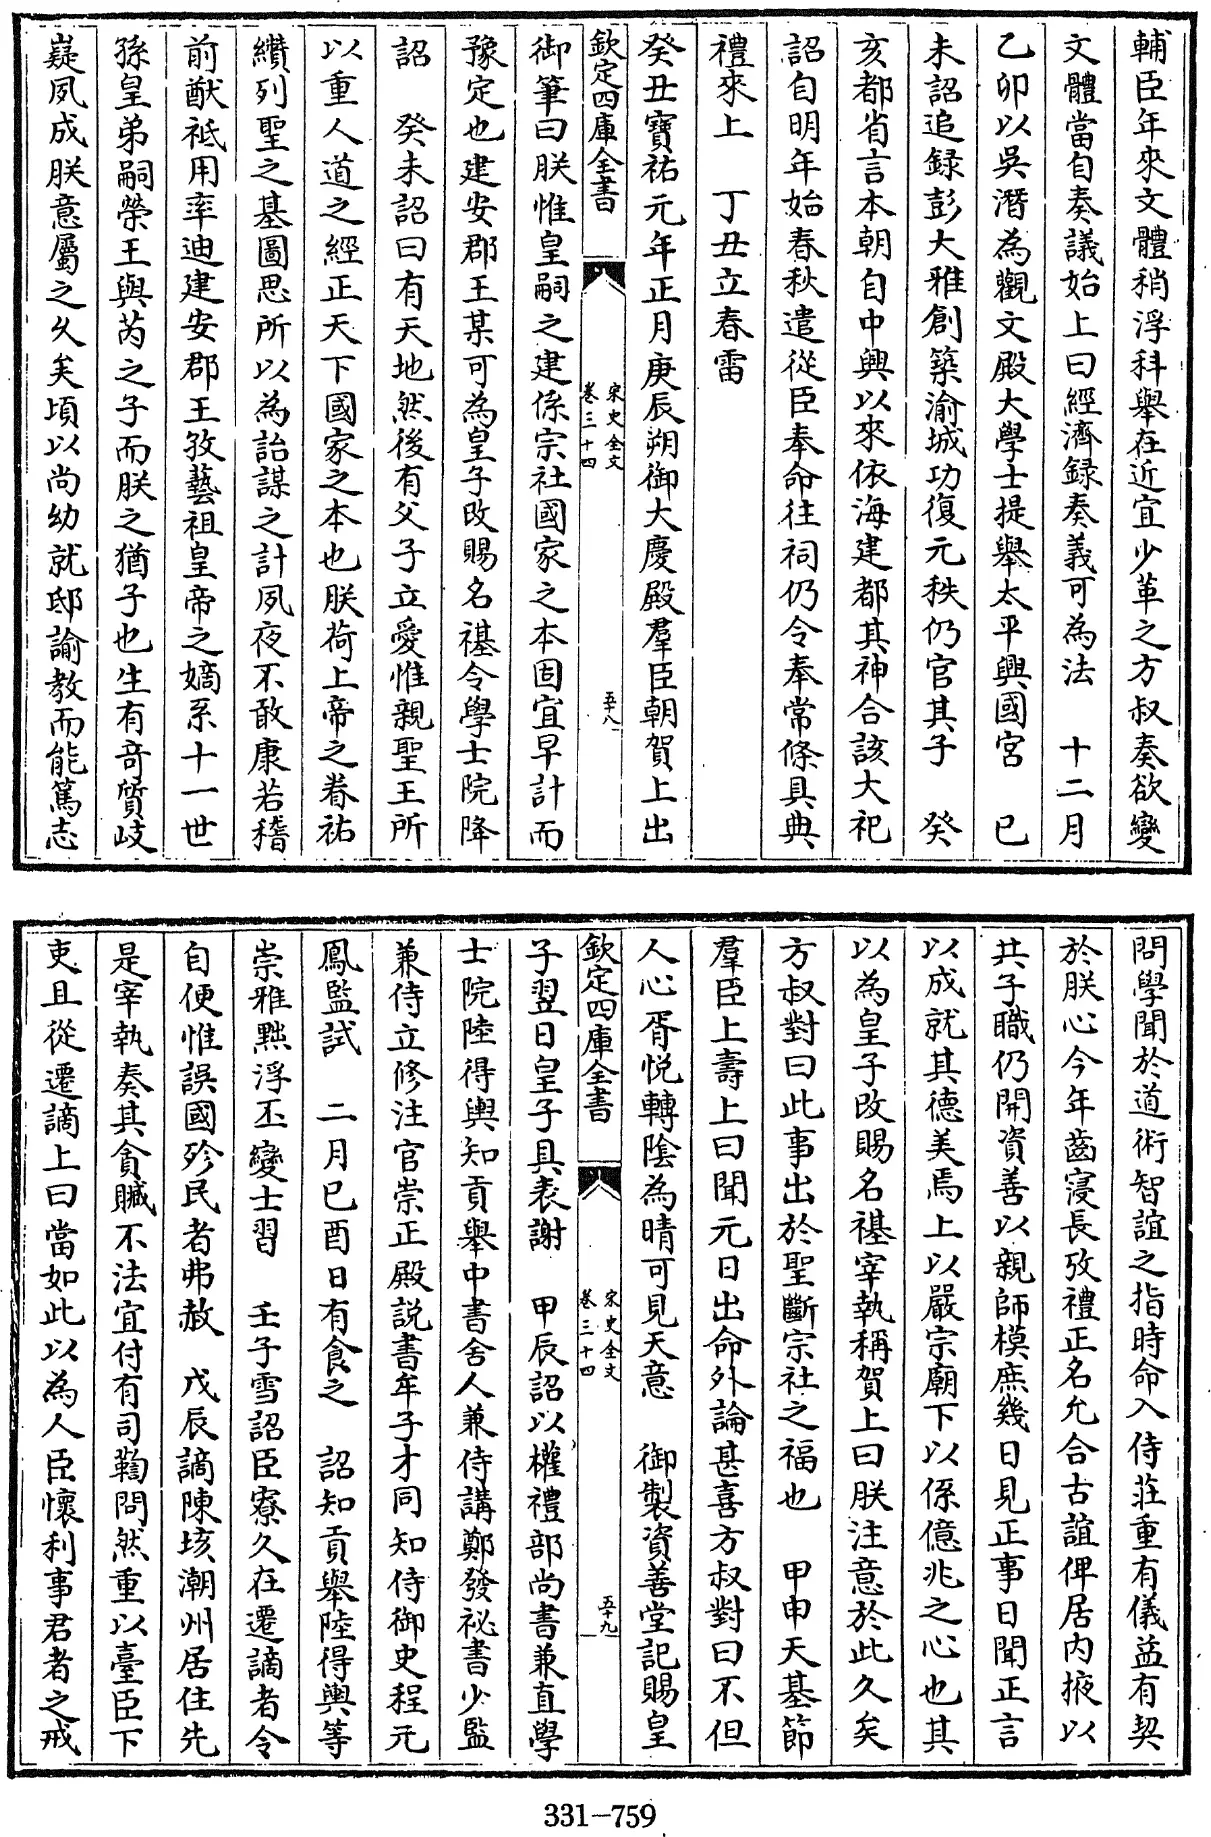 輔臣年來文體稍浮科舉在近宜少革之方叔奏欲變
文體當自奏議始上曰經濟録奏義可為法　十二月
乙卯以吳潛為觀文殿大學士提舉太平興國宮　已
未詔追録彭大雅創築渝城功復元秩仍官其子　癸
亥都省言本朝自中興以來依海建都其神合該大祀
詔自明年始春秋遣從臣奉命往祠仍令奉常條具典
禮來上　丁丑立春雷
癸丑寶祐元年正月庚辰朔御大慶殿羣臣朝賀上出
欽定四庫全書
宋史全文
卷三十四
五十八
御筆曰朕惟皇嗣之建係宗社國家之本固宜早計而
豫定也建安郡王某可為皇子改賜名禥令學士院降
詔　癸未詔曰有天地然後有父子立愛惟親聖王所
以重人道之經正天下國家之本也朕荷上帝之眷祐
纘列聖之基圖思所以為詒謀之計夙夜不敢康若稽
前猷祗用率迪建安郡王孜藝祖皇帝之嫡系十一世
孫皇弟嗣榮王與芮之子而朕之猶子也生有竒質岐
嶷夙成朕意屬之久矣頃以尚幼就邸諭教而能篤志
問學聞於道術智誼之指時命入侍莊重有儀益有契
於朕心今年齒寖長攷禮正名允合古誼俾居内掖以
共子職仍開資善以親師模庶幾日見正事日聞正言
以成就其德美焉上以嚴宗廟下以係億兆之心也其
以為皇子改賜名禥宰執稱賀上曰朕注意於此久矣
方叔對曰此事出於聖斷宗社之福也　甲申天基節
羣臣上壽上曰聞元日出命外論甚喜方叔對曰不但
人心胥悦轉陰為晴可見天意　御製資善堂記賜皇
欽定四庫全書
宋史全文
卷三十四
五十九
子翌日皇子具表謝　甲辰詔以權禮部尚書兼直學
士院陸得輿知貢舉中書舍人兼侍講鄭發祕書少監
兼侍立修注官崇正殿説書牟子才同知侍御史程元
鳳監試　二月已酉日有食之　詔知貢舉陸得輿等
崇雅黜浮丕變士習　壬子雪詔臣寮久在遷謫者令
自便惟誤國殄民者弗赦　戊辰謫陳垓潮州居住先
是宰執奏其貪贓不法宜付有司鞫問然重以臺臣下
吏且從遷謫上曰當如此以為人臣懷利事君者之戒
331-759